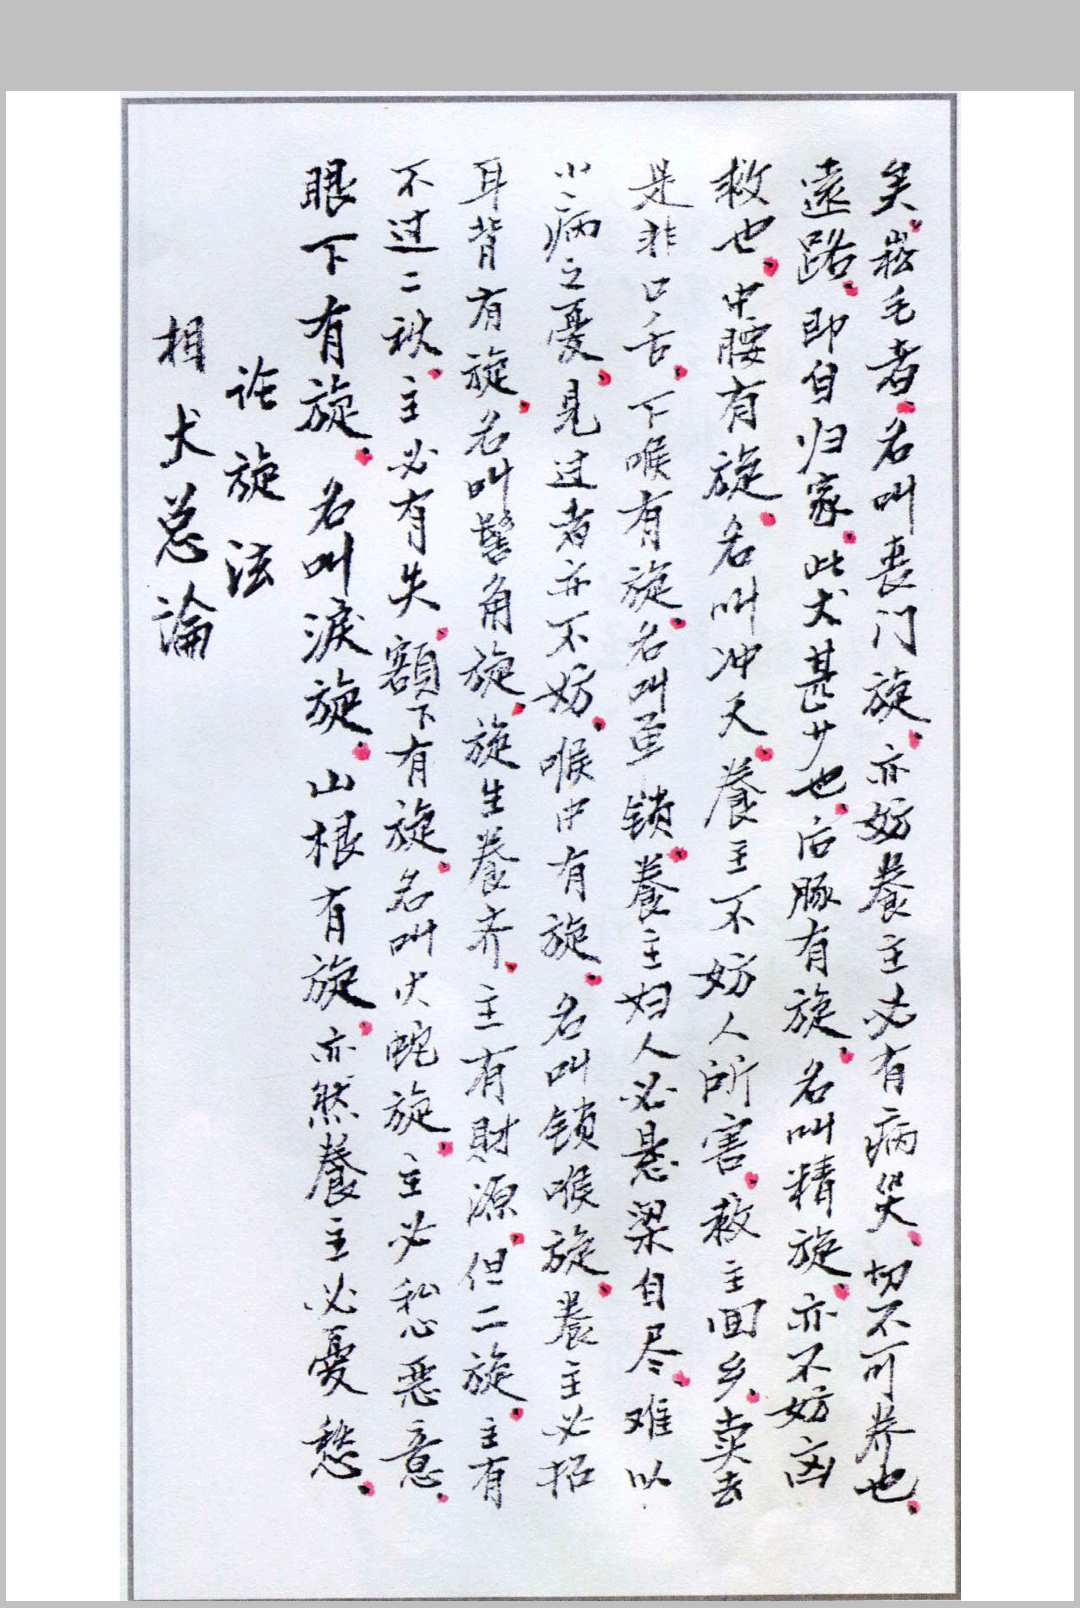 相犬总論
论旋法
眼下有旋。名叫淚旋。山根有旋。亦然養主必憂愁。
不过二秋。主必有失。額下有旋。名叫犬蛇旋。主必私心恶意。
耳背有旋。名叫鬢角旋。旋生養齐。主有財源。但二旋。主有
小病之憂。見过者亦不妨。喉中有旋。名叫锁喉旋。養主必招
是非口舌。下喉有旋。名叫重锁。養主妇人必悬梁自尽。难以
救也。中腰有旋。名叫冲天。養主不妨人所害。救主回乡。卖去
遠路。即自归家。此犬甚少也。后豚有旋。名叫精旋。亦不妨凶
矣。崧毛者。名叫丧门旋。亦妨養主必有病災。切不可养也。